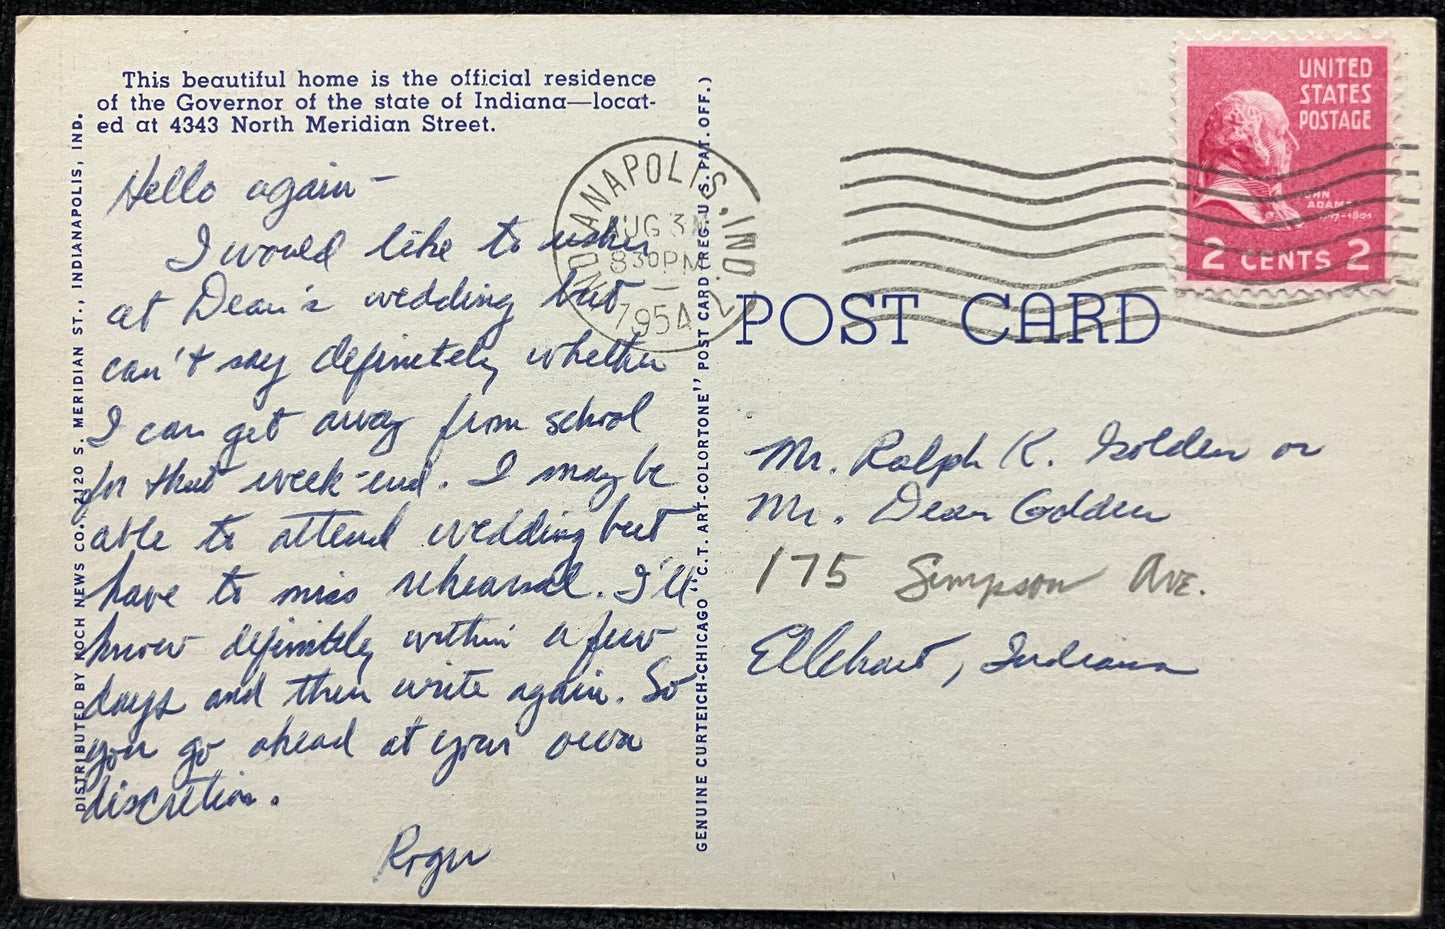 This beautiful home is the official residence
of the Governor of the state of Indiana—locat-
ed at 4343 North Meridian Street.
Hello again –
I would like to usher
at Dean's wedding but
can't say definitely whether
I can get away from school
for that week-end. I may be
able to attend wedding but
have to miss rehearsal. I'll
know definitely within a few
days and then write again. So
you go ahead at your own
discretion.
Roger
DISTRIBUTED BY KOCH NEWS CO., 2120 S. MERIDIAN ST., INDIANAPOLIS, IND.
GENUINE CURTEICH-CHICAGO "C.T. ART-COLORTONE" POST CARD (REG. U.S. PAT. OFF.)
INDIANAPOLIS, IND.
AUG 31
830PM
1954
2
UNITED
STATES
POSTAGE
JOHN
ADAMS
1797-1801
2 CENTS 2
POST CARD
Mr. Ralph R. Golden or
Mr. Dean Golden
175 Simpson Ave.
Elkhart, Indiana